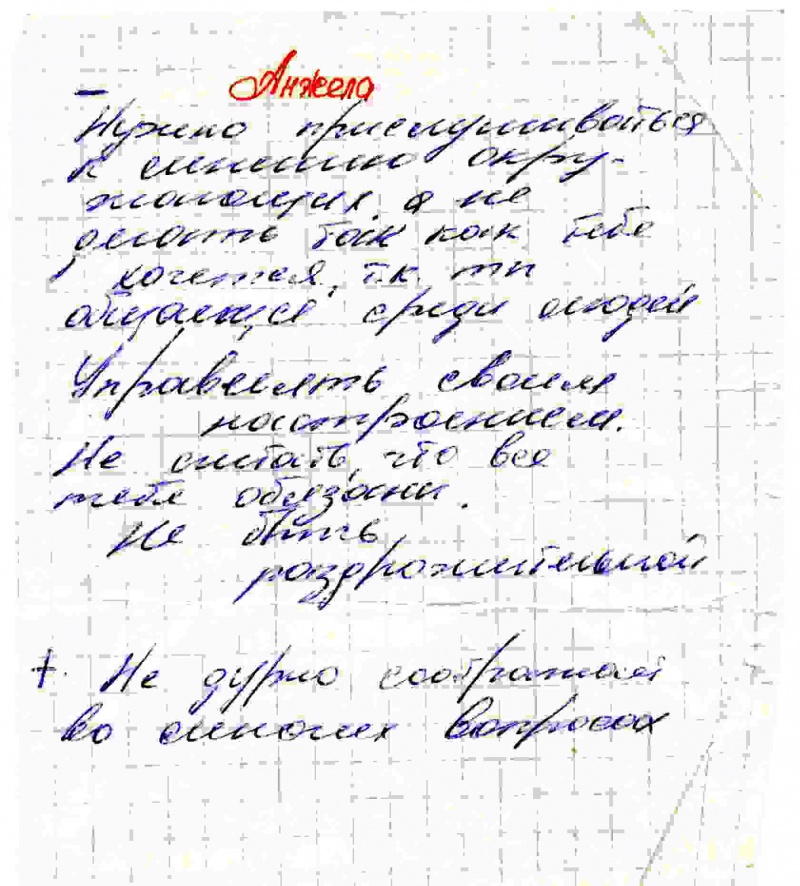 Анжела
–
Нужно прислушиваться
к мнению окру-
жающих, а не
делать так как тебе
хочется, т.к. ты
общаешся среди людей
Управлять своим
настроением.
Не считать, что все
тебе обязаны.
Не быть
раздрожительной
+. Не дурно соображает
во многих вопросах